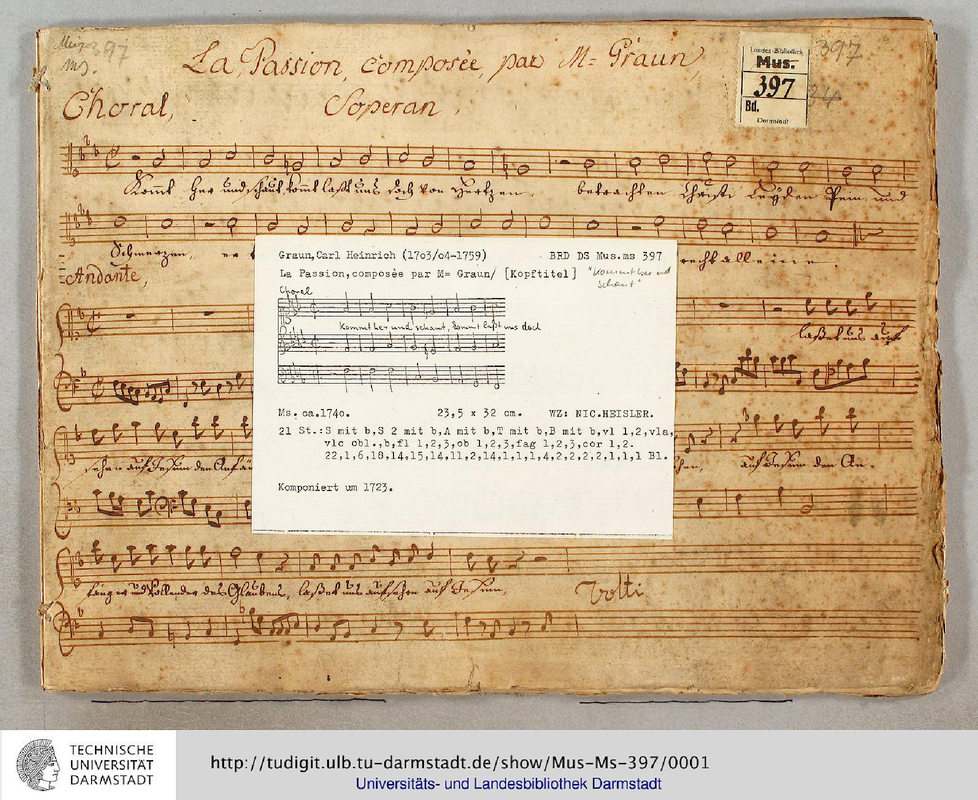 Mus. 397
Ms.
La Passion, composée, par M= Graun,
Choral, Soperan,
Landes-Bibliothek
Mus.
397
Bd.
Darmstadt
397
34
Komt her und schaut, komt laßt uns doch von Hertzen, betrachten Christi Leyden Pein und
Schmertzen,
recht alleine.
Andante,
laßet uns auf
sehen auf Jesum den Anfän
auf Jesum den An-
fänger und Vollender des Glaubens, laßet uns aufsehen auf Jesum,
Volti
Graun,Carl Heinrich (17o3/o4-1759) BRD DS Mus.ms 397
La Passion,composèe par M= Graun/ [Kopftitel] "Kommt her und
schaut"
Choral
Kommt her und schaut, kommt laßt uns doch
Ms. ca.174o. 23,5 x 32 cm. WZ: NIC.HEISLER.
21 St.:S mit b,S 2 mit b,A mit b,T mit b,B mit b,vl 1,2,vla,
vlc obl.,b,fl 1,2,3,ob 1,2,3,fag 1,2,3,cor 1,2.
22,1,6,18,14,15,14,11,2,14,1,1,1,4,2,2,2,2,1,1,1 Bl.
Komponiert um 1723.
TECHNISCHE
UNIVERSITÄT
DARMSTADT
http://tudigit.ulb.tu-darmstadt.de/show/Mus-Ms-397/0001
Universitäts- und Landesbibliothek Darmstadt